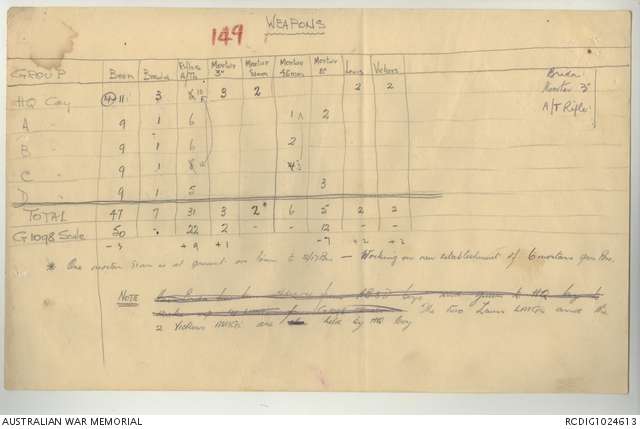 149
WEAPONS
GROUP Bren Breda Pilus A/Tk Mortar 3" Mortar 81mm Mortar 45mm Mortar 2" Lewis Vickers
HQ Coy 11 3 3 2 2 2
A " 9 1 6 1 2
B " 9 1 6 2
C " 9 1
D " 9 1 5 3
TOTAL 47 7 31 3 2* 6 5 2 2
G1098 Scale 50 - 22 2 - - 12 - -
-3 +9 +1 -7 +2 +2
Breda
Mortar 3"
A/T Rifle
* One mortar 81mm is at present on loan to 2/17 Bn — Working on new establishment of 6 mortars per Bn.
NOTE
The two Lewis LMGs and the
2 Vickers MMGs are held by HQ Coy
AUSTRALIAN WAR MEMORIAL RCDIG1024613